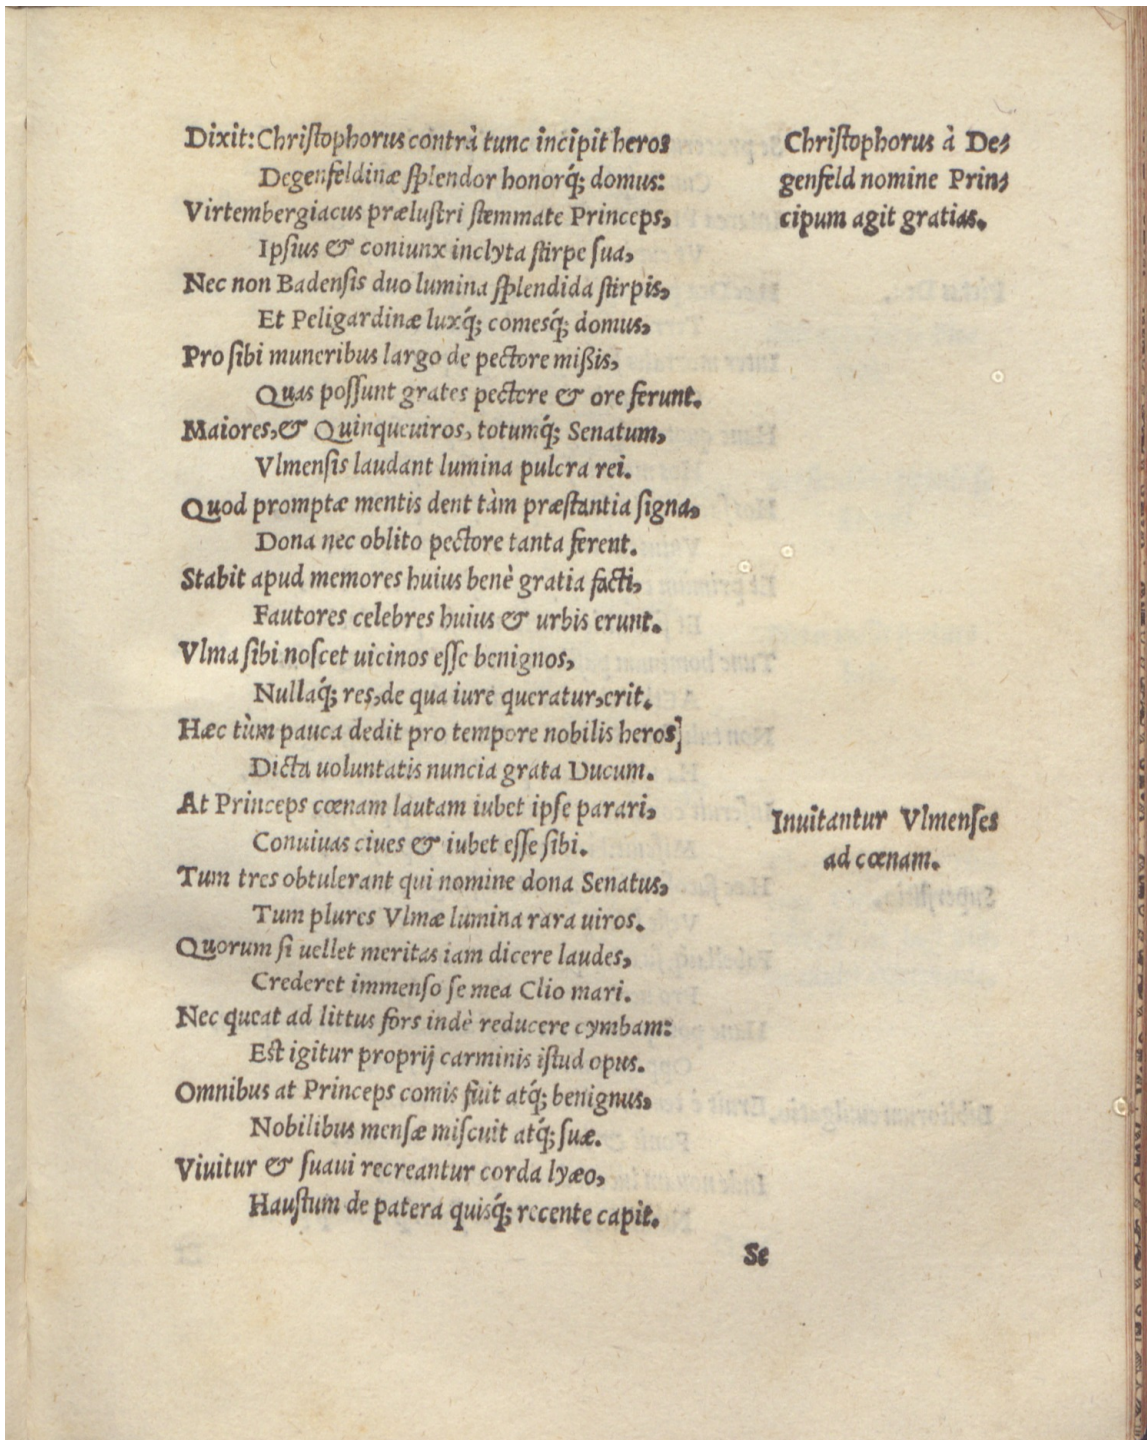 Dixit: Chriſtophorus contrà tunc incipit heros
Degenfeldinæ ſplendor honorq́; domus:
Virtembergiacus præluſtri ſtemmate Princeps,
Ipſius & coniunx inclyta ſtirpe ſua,
Nec non Badenſis duo lumina ſplendida ſtirpis,
Et Peligardinæ luxq́; comesq́; domus,
Pro ſibi muneribus largo de pectore mißis,
Quas poſſunt grates pectore & ore ferunt.
Maiores, & Quinqueuiros, totumq́; Senatum,
Vlmenſis laudant lumina pulcra rei.
Quod promptæ mentis dent tàm præſtantia ſigna,
Dona nec oblito pectore tanta ferent.
Stabit apud memores huius benè gratia facti,
Fautores celebres huius & urbis erunt.
Vlma ſibi noſcet uicinos eſſe benignos,
Nullaq́; res, de qua iure queratur, erit.
Hæc tùm pauca dedit pro tempore nobilis heros]
Dicta uoluntatis nuncia grata Ducum.
At Princeps cœnam lautam iubet ipſe parari,
Conuiuas ciues & iubet eſſe ſibi.
Tum tres obtulerant qui nomine dona Senatus,
Tum plures Vlmæ lumina rara uiros.
Quorum ſi uellet meritas iam dicere laudes,
Crederet immenſo ſe mea Clio mari.
Nec queat ad littus fors indè reducere cymbam:
Eſt igitur proprij carminis iſtud opus.
Omnibus at Princeps comis fuit atq́; benignus,
Nobilibus menſæ miſcuit atq́; ſuæ.
Viuitur & ſuaui recreantur corda lyæo,
Hauſtum de patera quisq́; recente capit.
Se
Chriſtophorus à De⸗
genfeld nomine Prin⸗
cipum agit gratias.
Inuitantur Vlmenſes
ad cœnam.